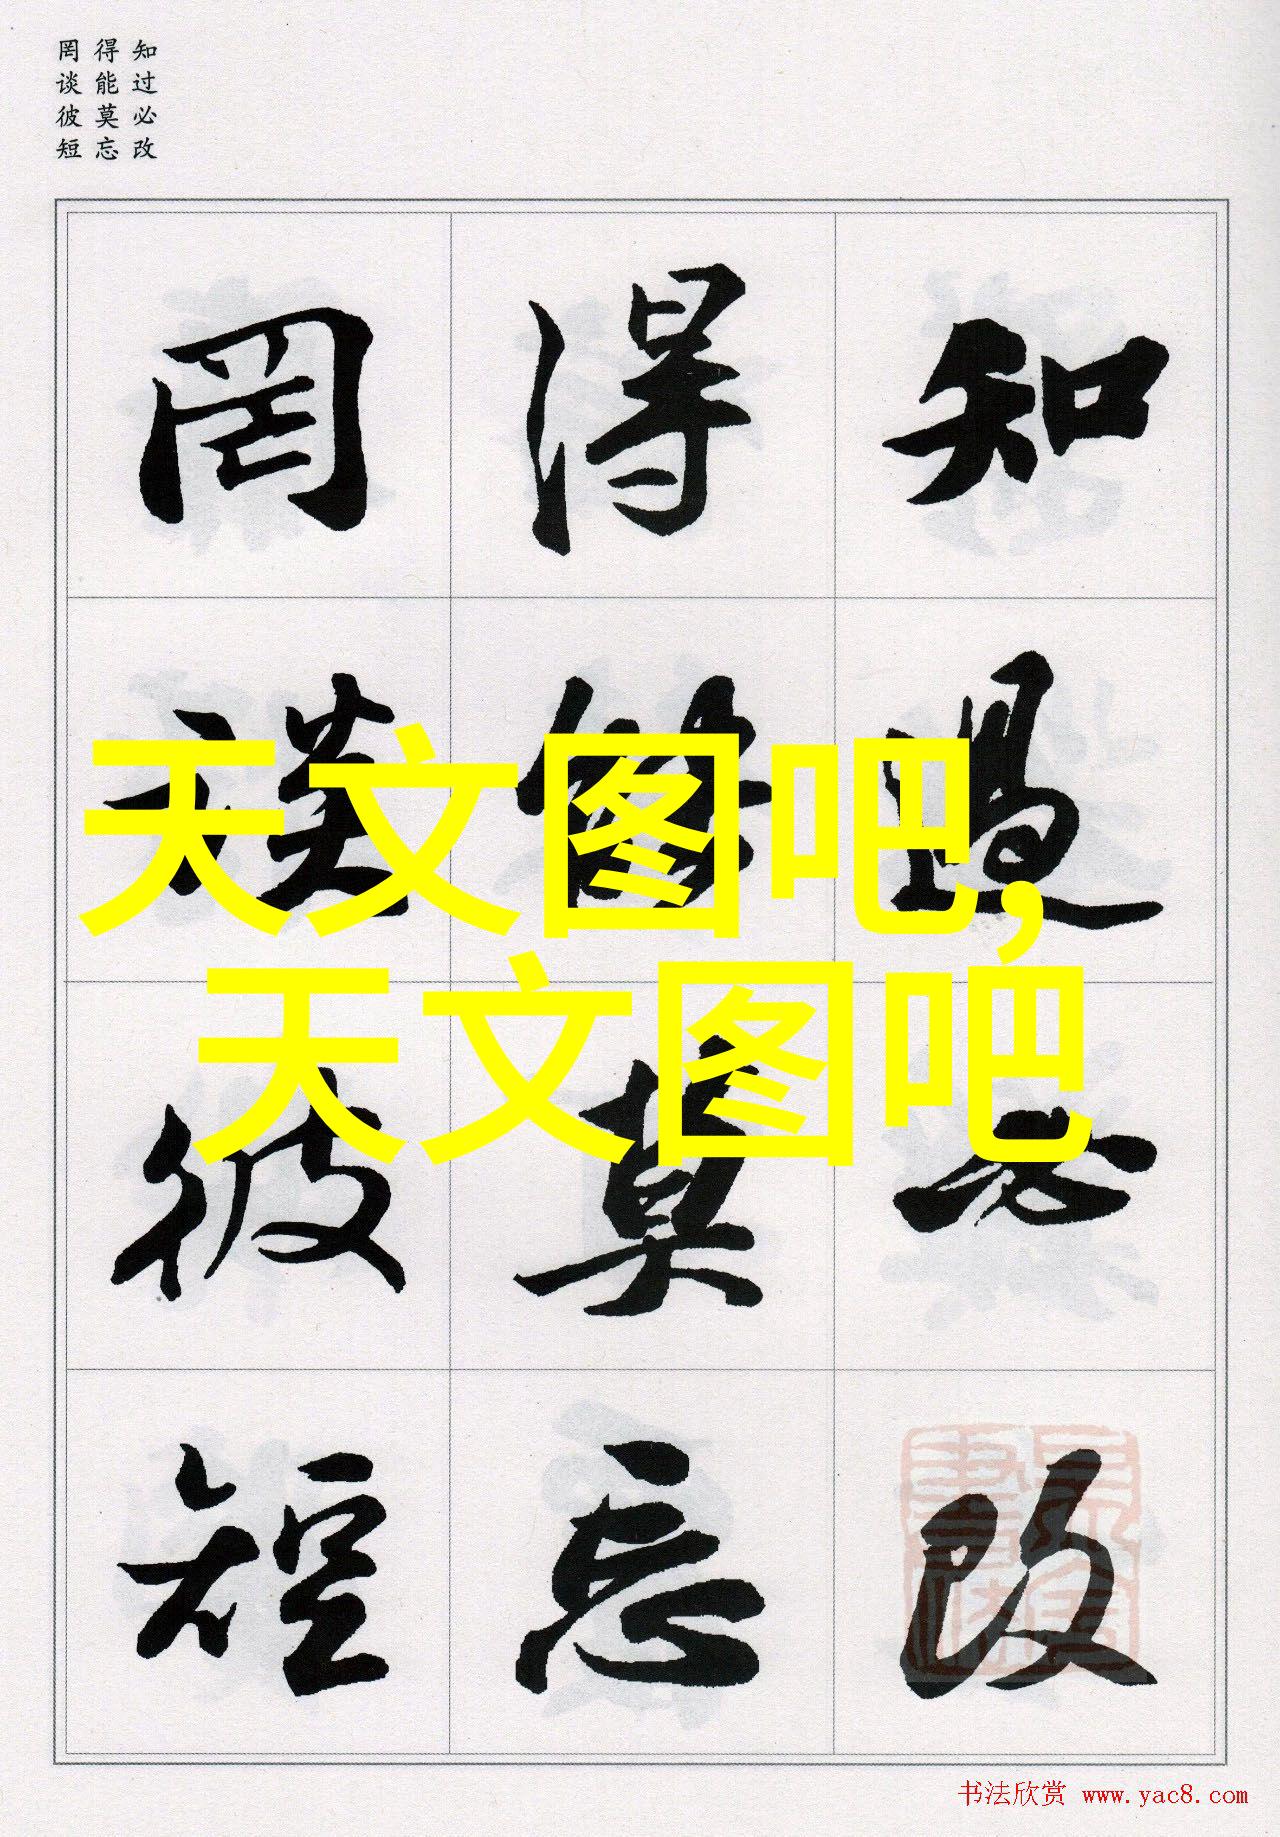 知过必改
得能莫忘
罔谈彼短
知過必改
得能莫忘
罔談彼短
天文图吧,
天文图吧
书法欣赏 www.yac8.com